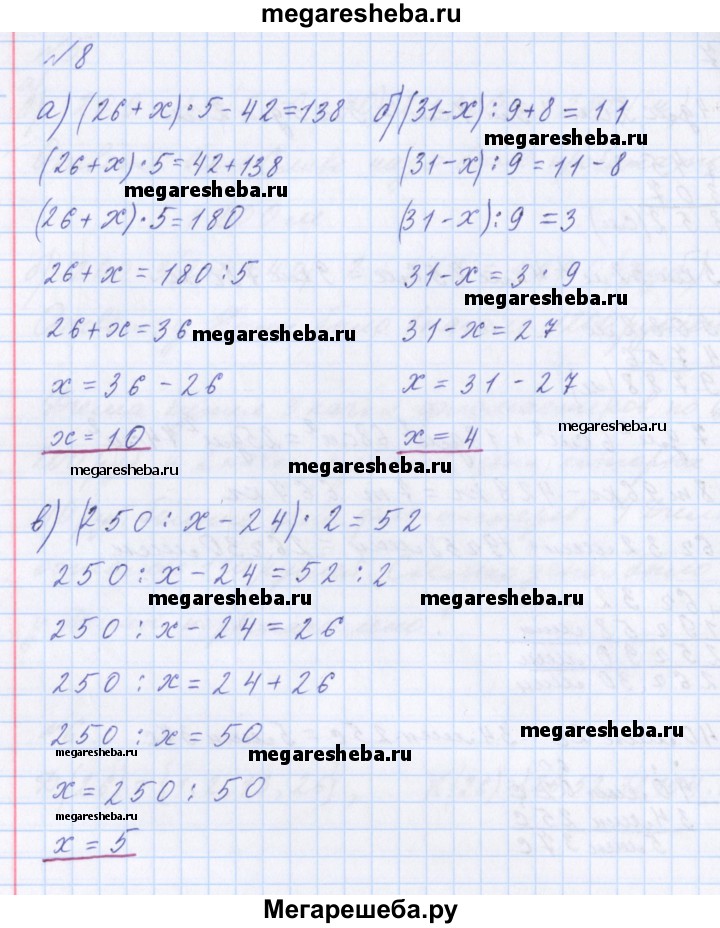 megaresheba.ru
№8
а) (26+x)·5-42=138
(26+x)·5=42+138
megaresheba.ru
(26+x)·5=180
26+x=180:5
26+x=36
megaresheba.ru
x=36-26
x=10
megaresheba.ru
б) (31-x):9+8=11
megaresheba.ru
(31-x):9=11-8
(31-x):9=3
31-x=3·9
megaresheba.ru
31-x=27
x=31-27
megaresheba.ru
x=4
megaresheba.ru
в) (250:x-24)·2=52
250:x-24=52:2
megaresheba.ru megaresheba.ru
250:x-24=26
250:x=24+26
250:x=50
megaresheba.ru
megaresheba.ru
megaresheba.ru
x=250:50
x=5
Мегарешеба.ру